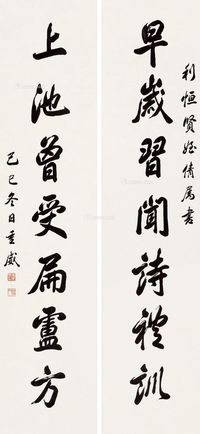 利恒賢姪倩属書
早歲習聞詩禮訓
上池曾受扁盧方
己巳冬日重威